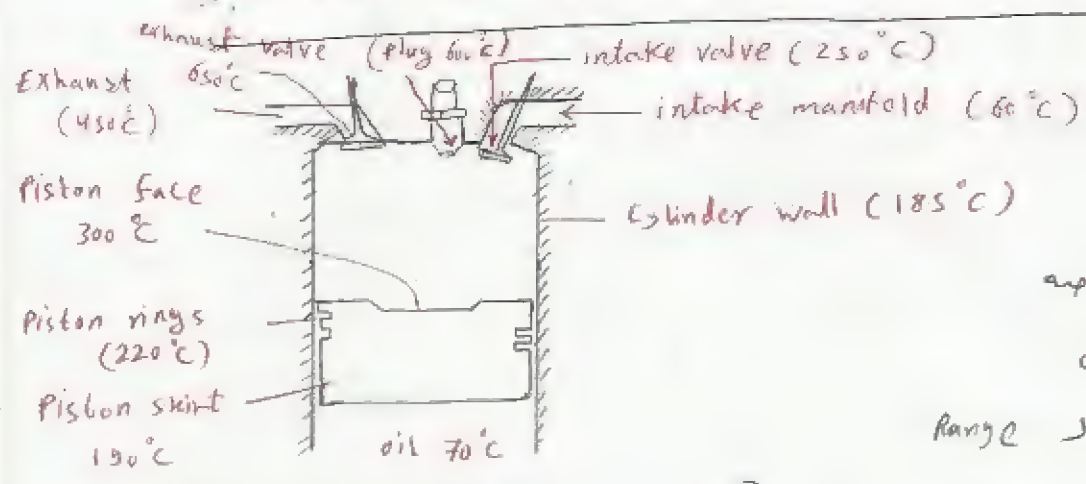 exhaust valve (plug 600°c) intake valve (250°C)
650°c
Exhanst
(450°c)
intake manifold (60°C)
Piston face
300°C
Cylinder wall (185°C)
Piston rings
(220°C)
Piston skirt
190°C
oil 70°C
Range